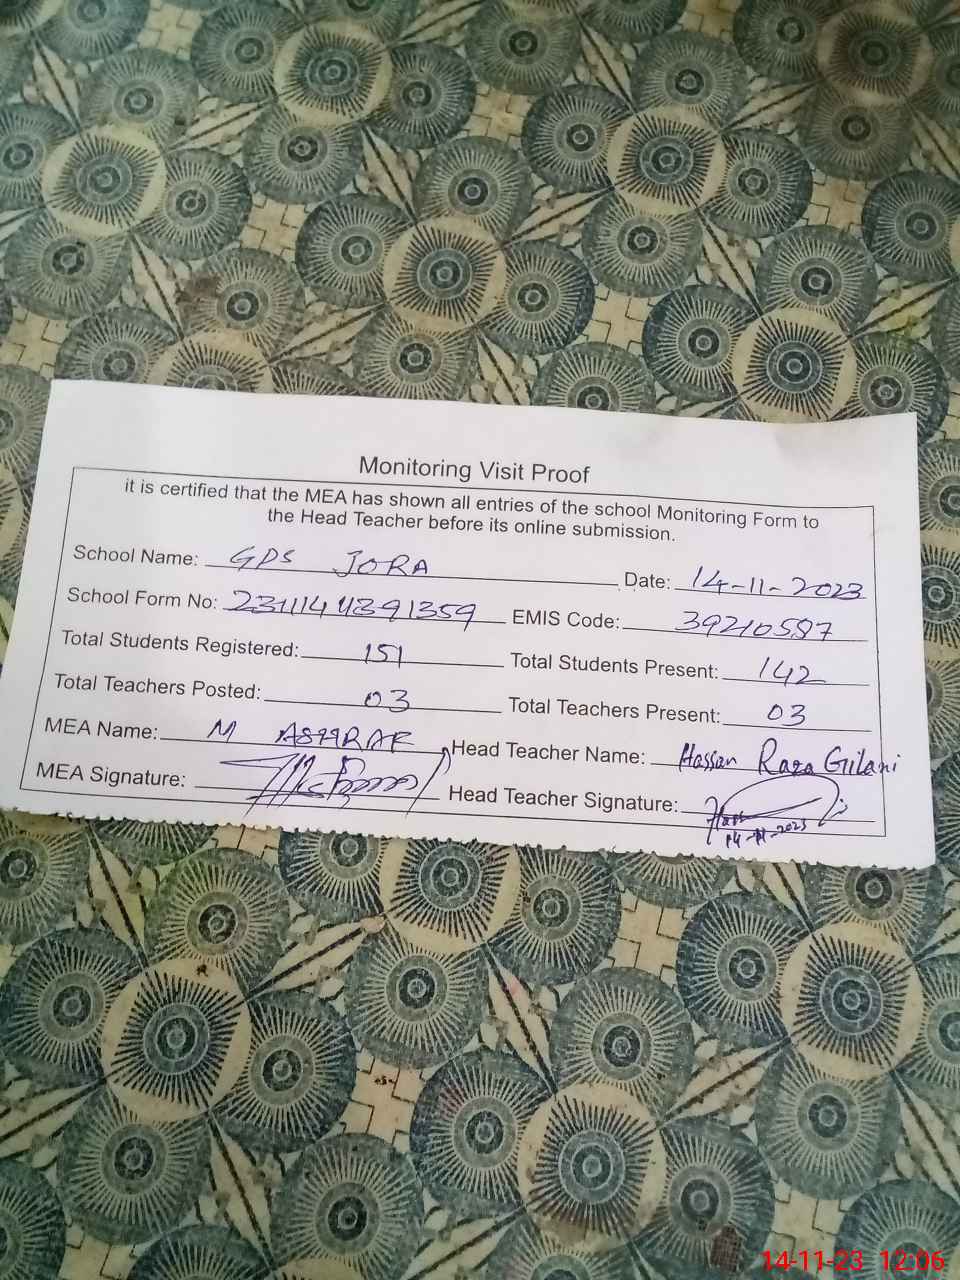 Monitoring Visit Proof
it is certified that the MEA has shown all entries of the school Monitoring Form to
the Head Teacher before its online submission.
School Name: GPS JORA Date: 14-11-2023
School Form No: EMIS Code: 39210587
Total Students Registered: 151 Total Students Present: 142
Total Teachers Posted: 03 Total Teachers Present: 03
MEA Name: M Head Teacher Name: Hassan Raza Gilani
MEA Signature: Head Teacher Signature:
14-11-2023
14-11-23 12:06